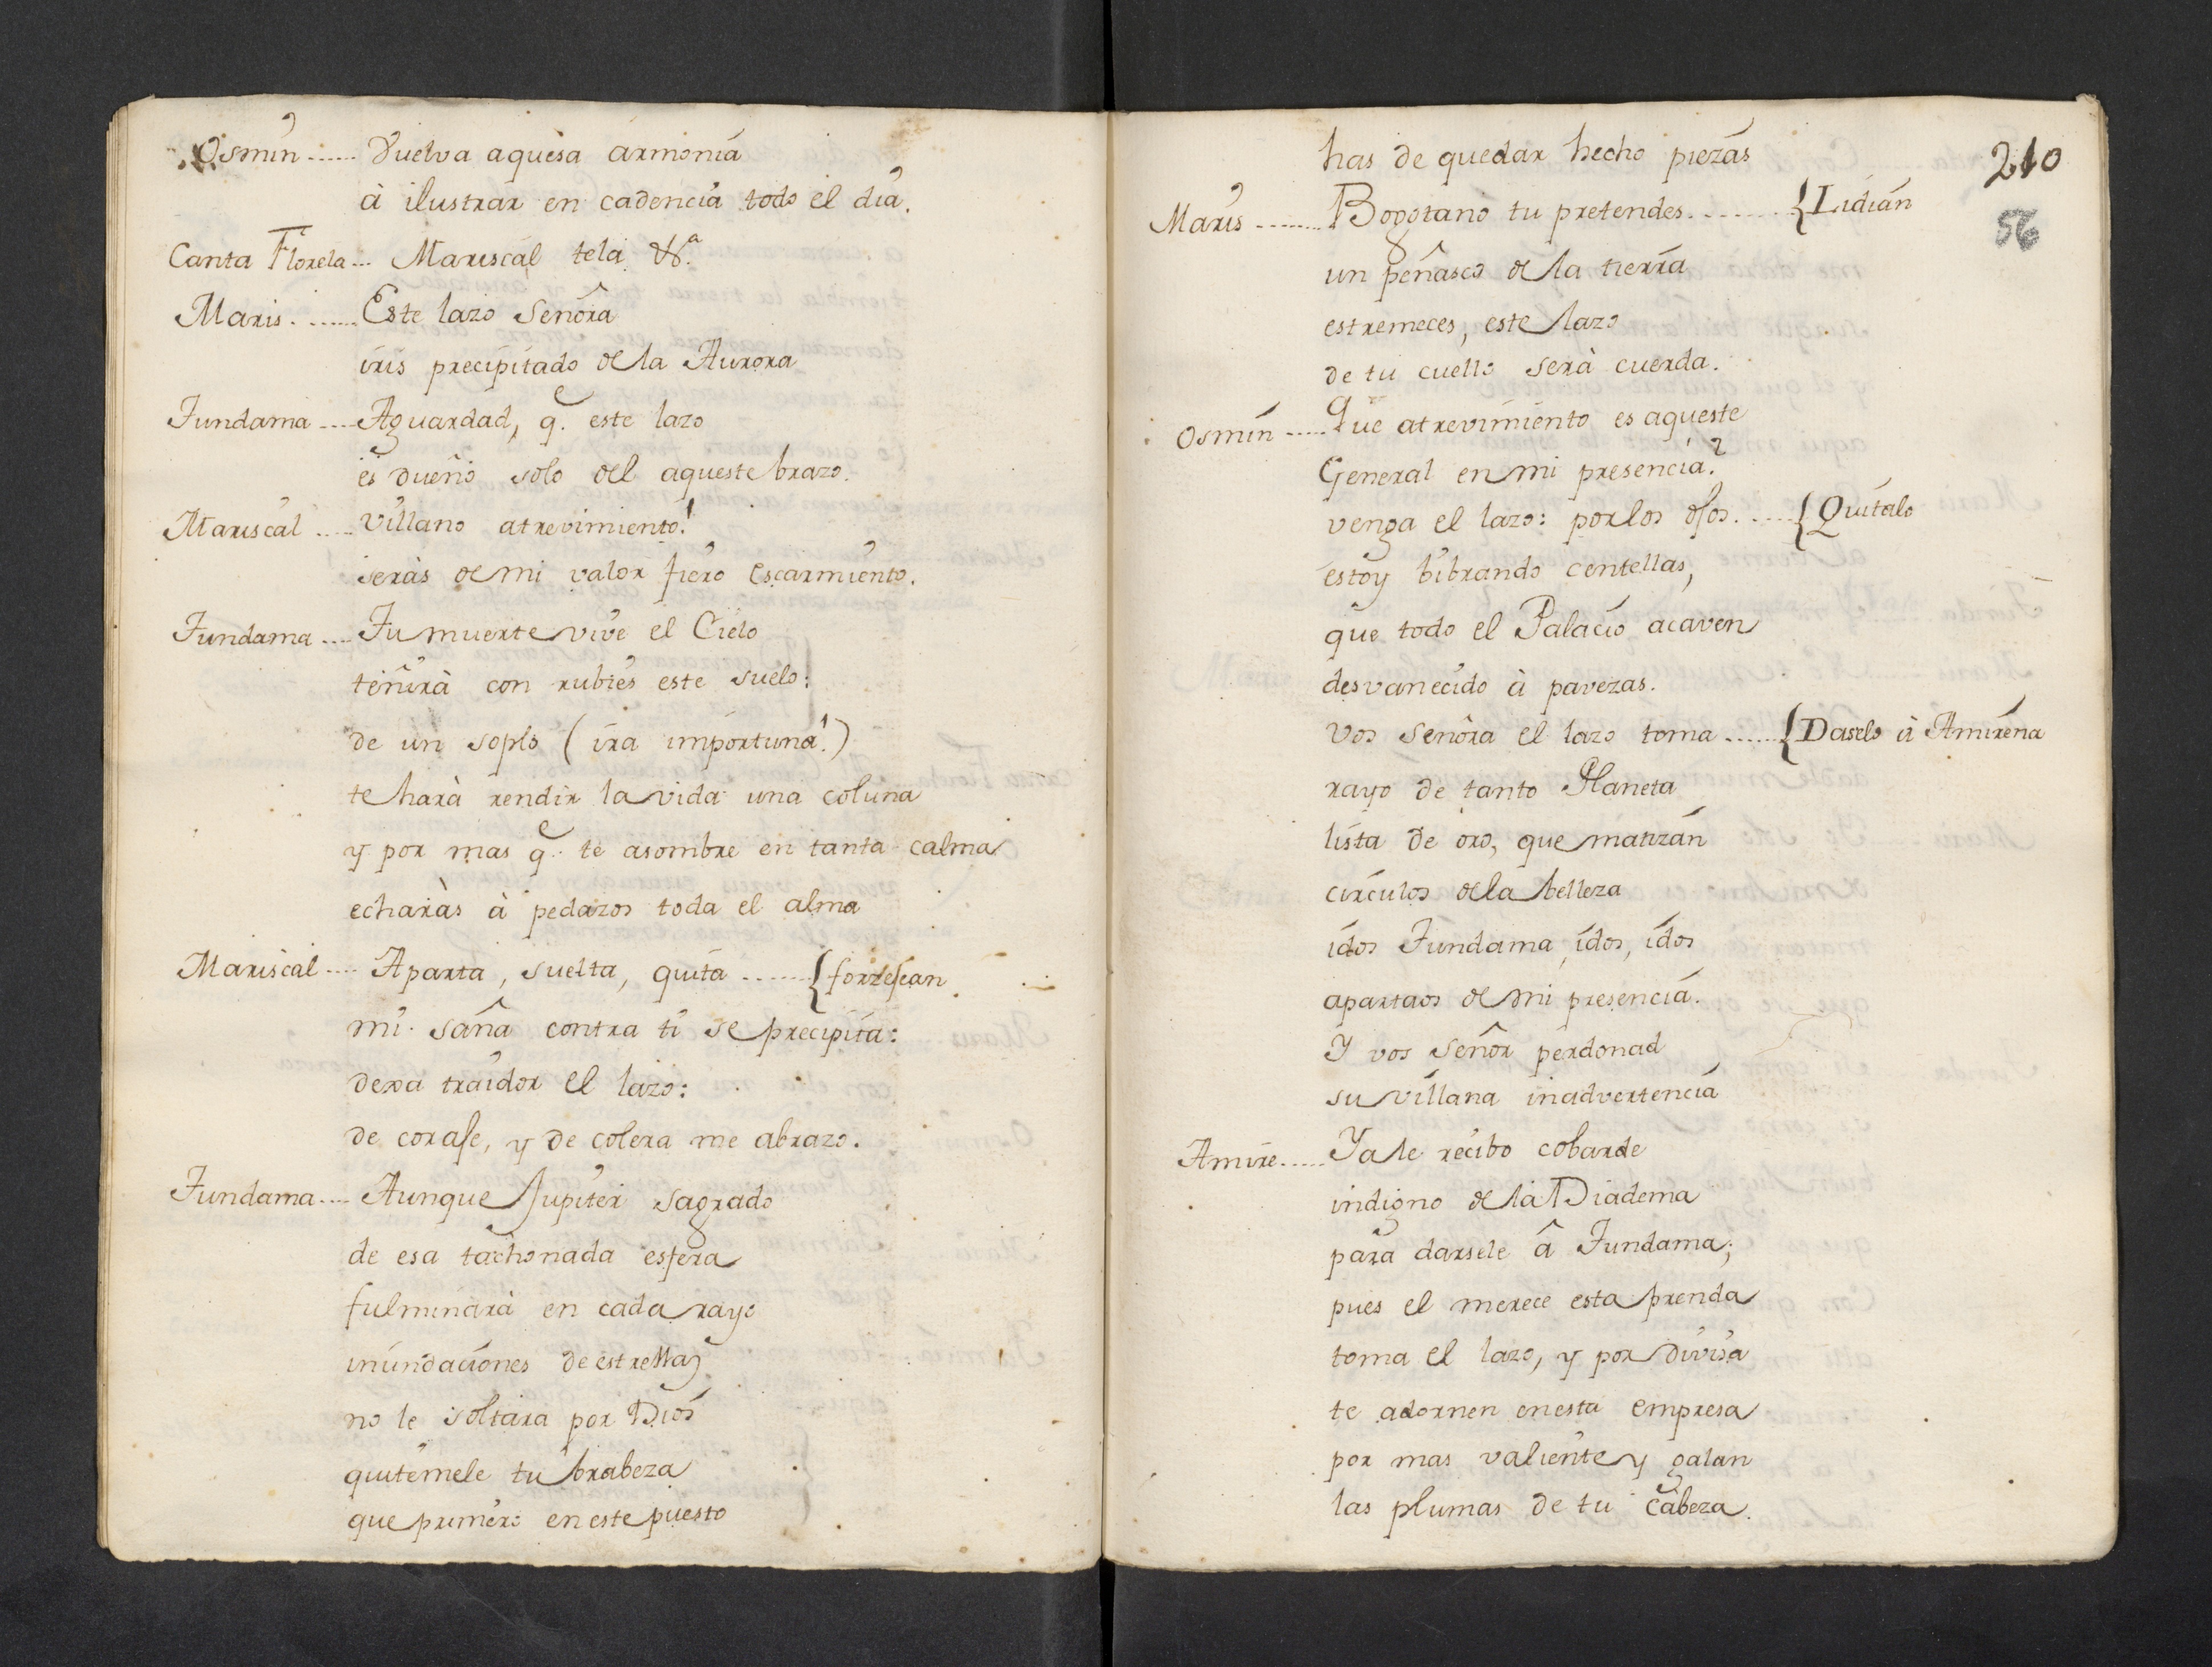 Osmin ...... Vuelva aquesa armonia
à ilustrar en cadencia todo el dia.
Canta Florela ... Mariscal tela &ª.
Maris. ...... Este lazo Señora
iris precipitado de la Aurora
Fundama .... Aguardad, q.e este lazo
es dueño solo del aqueste brazo.
Mariscal .... Villano atrevimiento!
seràs de mi valor fiero escarmiento.
Fundama .... Tu muerte vive el Cielo
teñirà con rubies este suelo:
de un soplo (ira importuna!)
te harà rendir la vida una coluna
y por mas q.e te asombre en tanta calma
echaràs à pedazos toda el alma
Mariscal .... Aparta, suelta, quita ...... { forzejean
mi saña contra ti se precipita:
dexa traidor el lazo:
de coraje, y de colera me abrazo.
Fundama .... Aunque Jupiter sagrado
de esa tachonada esfera
fulminarà en cada rayo
inundaciones de estrellas
no le soltara por Dios
quitemele tu brabeza
que primero en este puesto
210
56
has de quedar hecho piezas
Maris ....... Bogotano tu pretendes ....... { Lidian
un peñasco de la tierra
estremeces, este lazo
de tu cuello serà cuerda.
Osmin ..... Que atrevimiento es aqueste
General en mi presencia?
venga el lazo: por los ojos ..... { Quitalo
estoy bibrando centellas,
que todo el Palacio acaven
desvanecido à pavezas.
Vos señora el lazo toma ...... { Daselo à Amirena
rayo de tanto Planeta
lista de oro, que matizan
circulos de la belleza
idos Fundama, idos, idos
apartaos de mi presencia.
Y vos Señor perdonad
su villana inadvertencia
Amire ..... Ya le recibo cobarde
indigno de la Diadema
para darsele â Fundama;
pues el merece esta prenda
toma el lazo, y por divisa
te adornen en esta empresa
por mas valiente y galan
las plumas de tu cabeza.